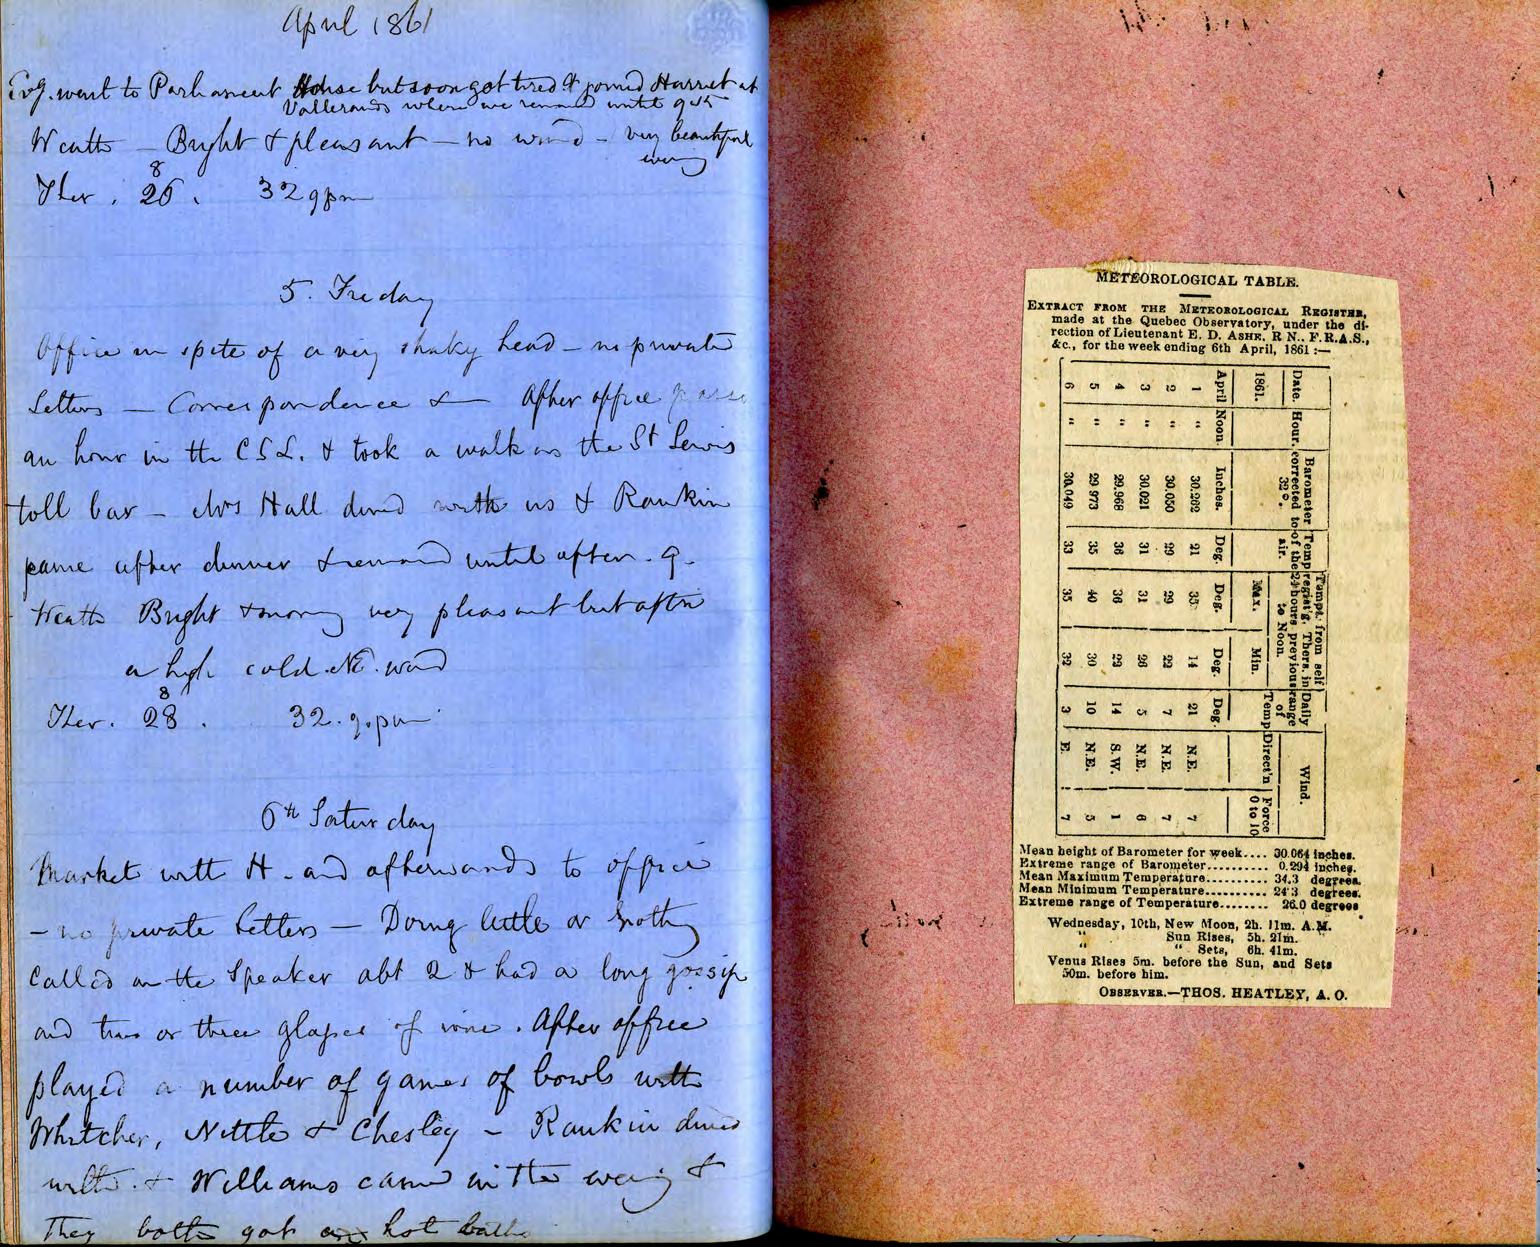 April 1861
Evg. went to Parliament House but soon got tired & joined Harriet at
Vallerands where we remd until 9
Weath - Bright & pleasant - no wind - very beautiful
evening
8
Ther. 26. 32 9pm
5. Friday
Office in spite of a very shaky head - no private
letters - Correspondence & After office passed
an hour in the C S L. & took a walk on the St Lewis
toll bar - Mrs Hall dined with us & Rankin
came after dinner & remaind until after 9.
Weath Bright & morng very pleasant but aftn
a high cold NE. wind
8
Ther. 28. 32. 9.pm
6th Saturday
Market with H - and afterwards to office
- no private letters - Doing little or nothg
Called on the Speaker abt 2 & had a long gossip
and two or three glasses of wine. After office
played a number of games of bowls with
Whitcher, Nettle & Chesley - Rankin dined
with. & Williams came in the eveng &
They both got hot baths
METEOROLOGICAL TABLE.
EXTRACT FROM THE METEOROLOGICAL REGISTER,
made at the Quebec Observatory, under the di-
rection of Lieutenant E. D. ASHE, R N., F.R.A.S.,
&c., for the week ending 6th April, 1861 :—
Date. Hour. Barometer corrected to 32°. Temp of the air. Tempt. from self regist'g. Thers. in 24 hours previous to Noon. Daily range of Temp Wind.
Max. Min. Direct'n Force 0 to 10
1861.
April Noon. Inches. Deg. Deg. Deg. Deg.
1 " 30.262 21 35 14 21 N.E. 7
2 " 30.050 29 29 22 7 N.E. 7
3 " 30.021 31 31 26 5 N.E. 6
4 " 29.968 36 36 29 14 S.W. 1
5 " 29.973 35 40 30 10 N.E. 5
6 " 30.049 33 35 32 3 E. 7
Mean height of Barometer for week.... 30.064 inches.
Extreme range of Barometer.......... 0.294 inches.
Mean Maximum Temperature.......... 34.3 degrees.
Mean Minimum Temperature.......... 24'3 degrees.
Extreme range of Temperature........ 26.0 degrees
Wednesday, 10th, New Moon, 2h. 11m. A.M.
" Sun Rises, 5h. 21m.
" " Sets, 6h. 41m.
Venus Rises 5m. before the Sun, and Sets
50m. before him.
OBSERVER.—THOS. HEATLEY, A. O.